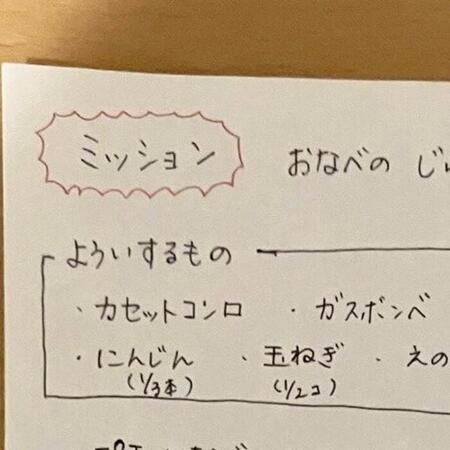 ミッション おなべの じ
よういするもの
・カセットコンロ ・ガスボンベ
・にんじん ・玉ねぎ ・えの
(1/3本) (1/2コ)